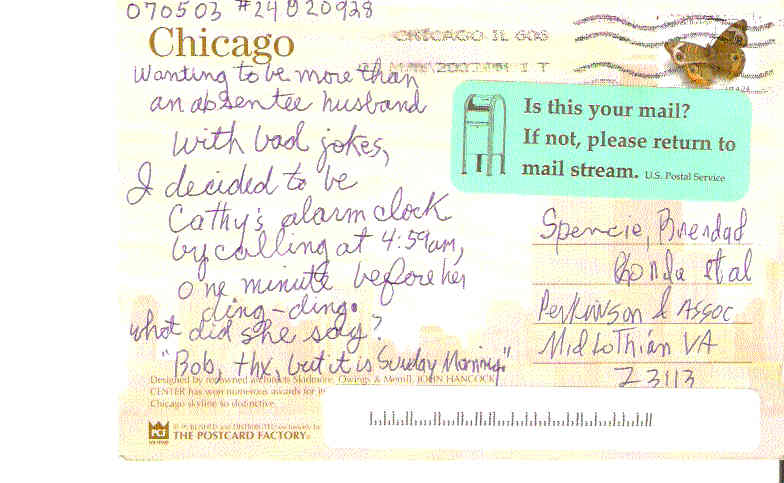 070503 #24020928
Chicago
CHICAGO IL 606
Wanting to be more than
an absentee husband
with bad jokes,
I decided to be
Cathy's alarm clock
by calling at 4:59am,
one minute before her
ding-ding.
what did she say?
"Bob, thx, but it is Sunday Morning."
Is this your mail?
If not, please return to
mail stream. U.S. Postal Service
Spencie, Brendad
Rhonda et al
Perkinson & Assoc
Midlothian VA
23113
Designed by renowned architects Skidmore, Owings & Merrill, JOHN HANCOCK
CENTER has won numerous awards for its
Chicago skyline so distinctive.
PCF
© PUBLISHED and DISTRIBUTED exclusively by
THE POSTCARD FACTORY®